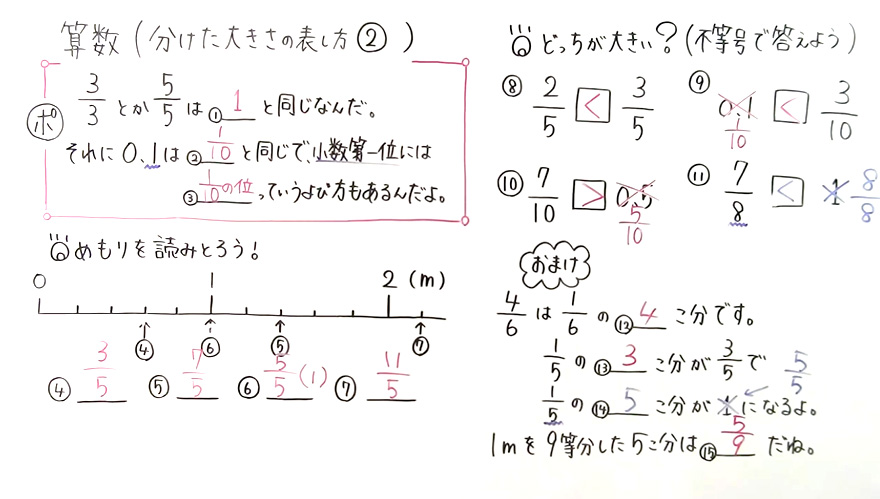 算数(分けた大きさの表し方②)
ポ
3/3 とか 5/5 は ① 1 と同じなんだ。
それに 0.1は ② 1/10 と同じで、小数第一位には
③ 1/10の位 っていうよび方もあるんだよ。
めもりを読みとろう!
0 1 2 (m)
④ ⑥ ⑤ ⑦
④ 3/5 ⑤ 7/5 ⑥ 5/5 (1) ⑦ 11/5
どっちが大きい?(不等号で答えよう)
⑧ 2/5 < 3/5 ⑨ 0.1 1/10 < 3/10
⑩ 7/10 > 0.5 5/10 ⑪ 7/8 < 1 8/8
おまけ
4/6 は 1/6 の ⑫ 4 こ分です。
1/5 の ⑬ 3 こ分が 3/5 で
1/5 の ⑭ 5 こ分が 1 5/5 になるよ。
1mを9等分した5こ分は ⑮ 5/9 だね。